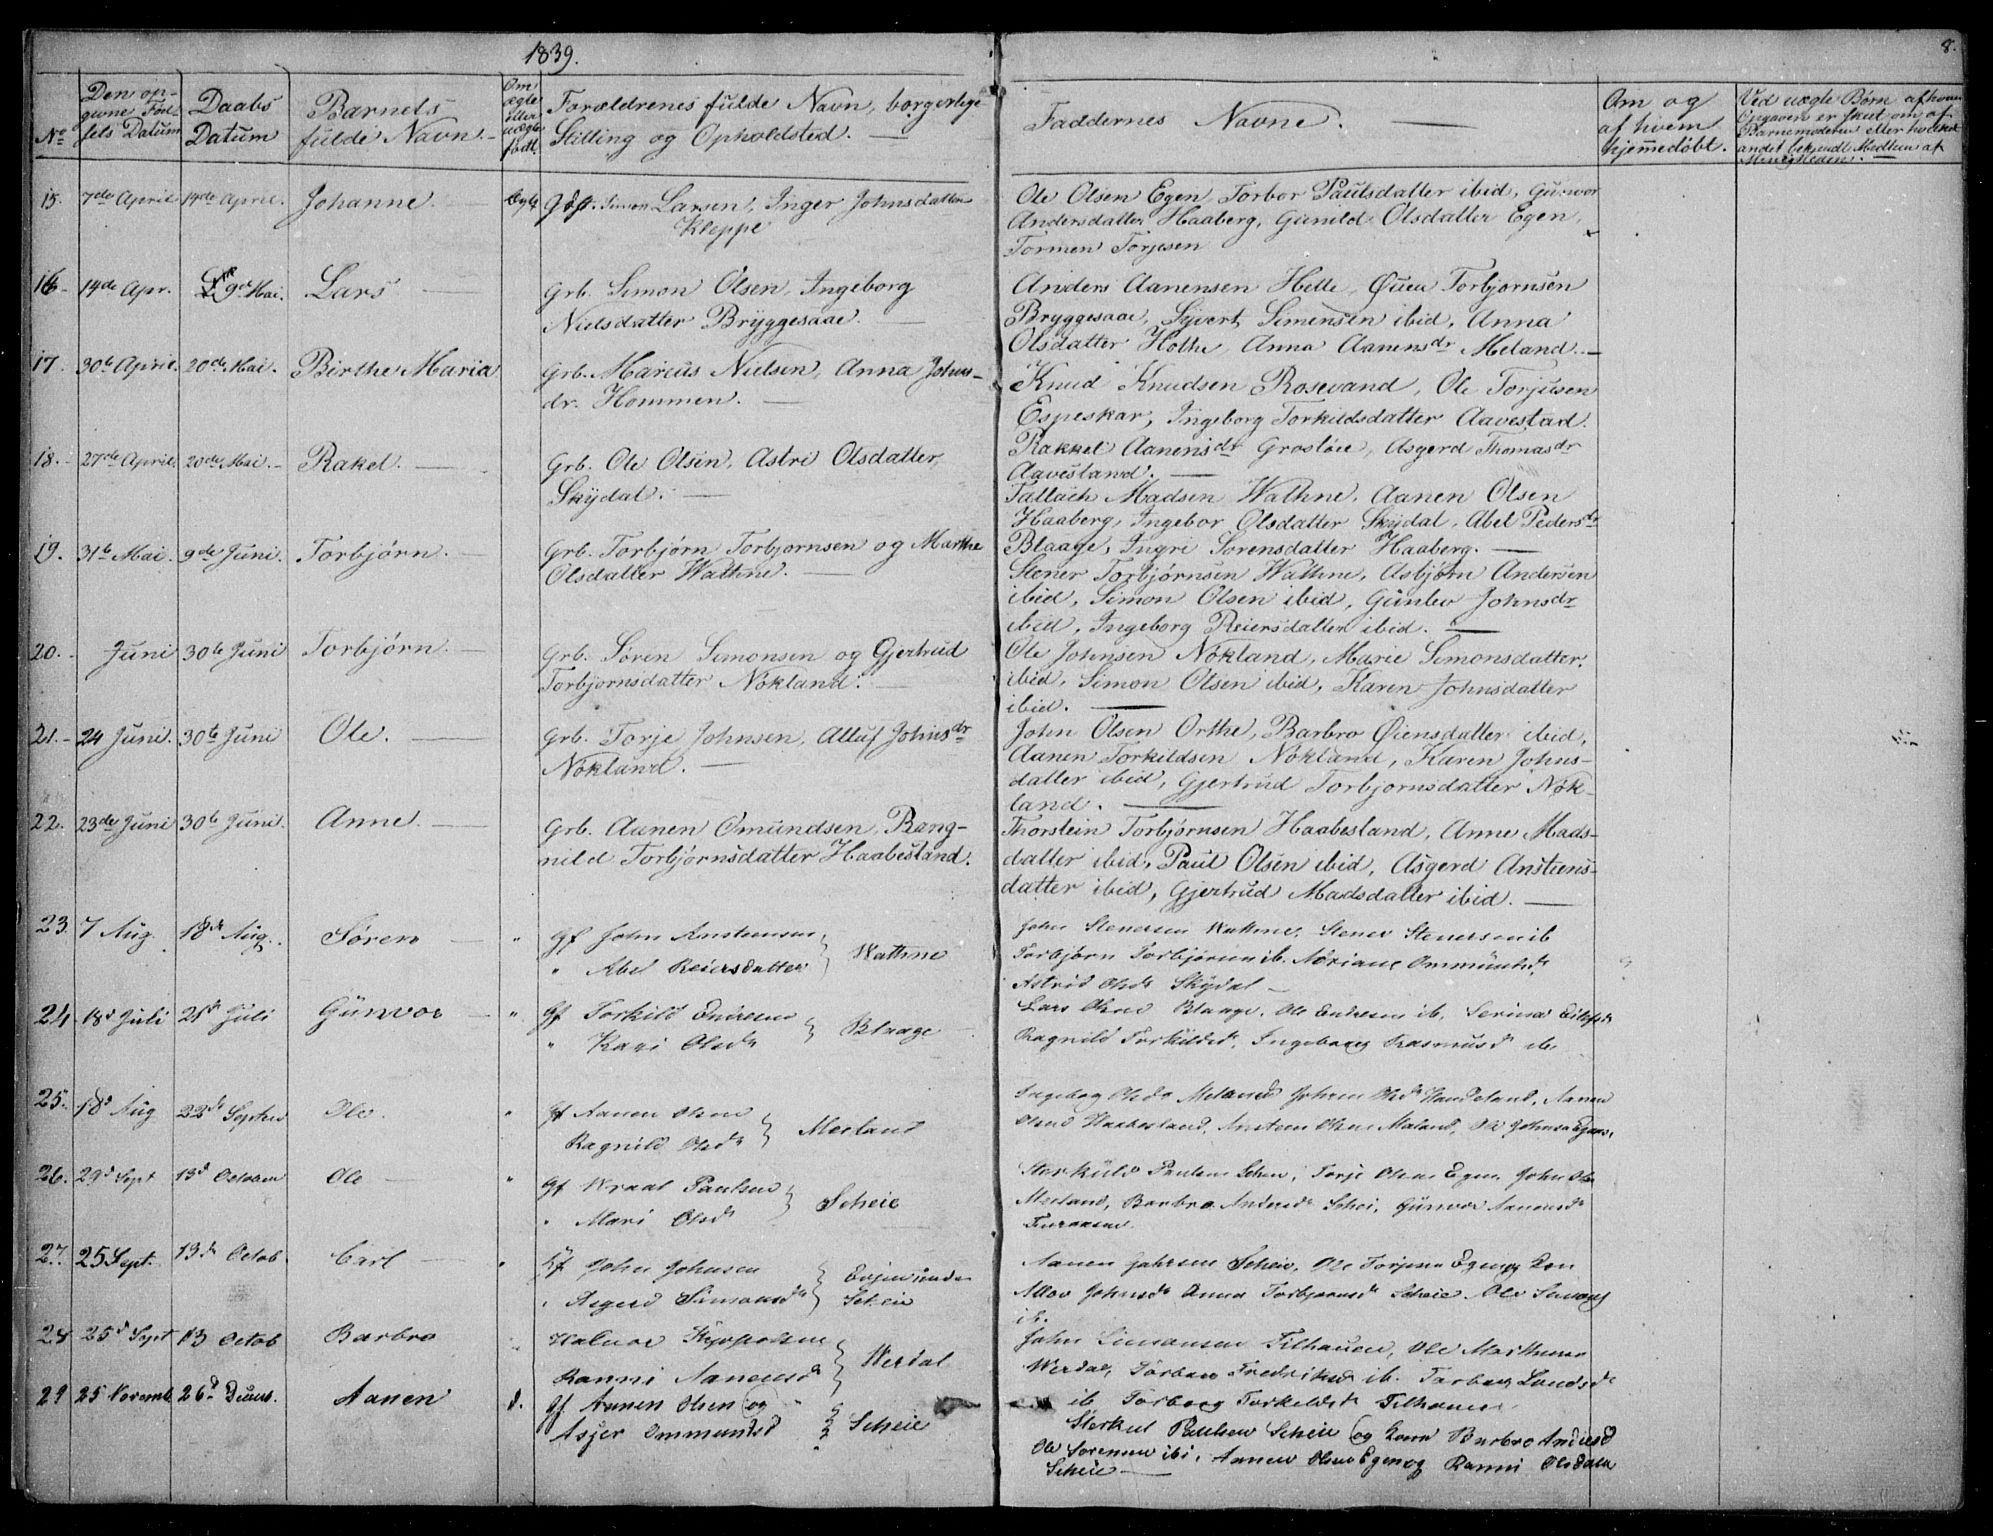 1839.
8.
No
Den op-
givne Fød-
sels Datum
Daabs
Datum
Barnets
fulde Navn.
Om
ægte
eller
uægte
født.
Forældrenes fulde Navn, borgerlige
Stilling og Opholdsted.
Faddernes Navne.
Om og
af hvem
hjemmedøbt.
Ved uægte Børn, af hvem
Opgaven er skeet om af
Barnemoderen eller hvilket
andet bekjendt Medlem af
Menigheden.
15. 7de April 14de April. Johanne. Ægte Gdf. Simon Larsen, Inger Johnsdatter
Kleppe
Ole Olsen Egen, Torbor Paulsdatter ibid, Gunvor
Andersdatter Haaberg, Gunild Olsdatter Egen,
Tormen Torjesen
16. 14de Apr. 9de Mai. Lars Grb. Simon Olsen, Ingeborg
Nielsdatter Bryggesaae.
Anders Aanensen Helle, Torbjornsen
Bryggesaae, Syvert Simensen ibid, Anna
Olsdatter Holthe, Anna Aanensdr Meland.
17. 30te April. 20de Mai. Birthe Maria Grb. Marcus Nielsen, Anna Johns-
dr. Hommen.
Knud Knudsen Rosevand, Ole Torjusen
Espeskar, Ingeborg Torkildsdatter Aavestad.
Rakkel Aanensdr Grosløie, Asgerd Thomasdr
Aavesland.
18. 27de April. 20de Mai. Rakel. Grb. Ole Olsen, Astri Olsdatter,
Skÿdal.
Tallach Madsen Wathne, Aanen Olsen
Haaberg, Ingebor Olsdatter Skÿdal, Abel Pedersdr
Blaage, Ingri Sorensdatter Haaberg.
19. 31te Mai. 9de Juni. Torbjørn. Grb. Torbjørn Torbjornsen og Marthe
Olsdatter Wathne.
Stener Torbjørnsen Wathne, Asbjørn Andersen
ibid, Simon Olsen ibid, Gunlev Johnsdr
ibid, Ingeborg Reiersdatter ibid.
20. Juni 30te Juni Torbjørn. Grb. Søren Simonsen og Gjertrud
Torbjornsdatter Nøkland.
Ole Johnsen Nøkland, Marie Simonsdatter,
ibid, Simon Olsen ibid, Karen Johnsdatter
ibid.
21. 24 Juni. 30te Juni Ole. Grb. Torje Johnsen, Alluf Johnsdr
Nøkland.
John Olsen Orthe, Barbro Øiensdatter ibid,
Aanen Torkildsen Nøkland, Karen Johns-
datter ibid, Gjertrud Torbjornsdatter Nøk-
land.
22. 23de Juni 30te Juni. Anne. Grb. Aanen Omundsen, Rang-
nild Torbjørnsdatter Haabesland.
Thorstein Torbjørnsen Haabesland, Anne Mads-
datter ibid, Paul Olsen ibid, Asgerd Anstens-
datter ibid, Gjertrud Madsdatter ibid.
23. 7 Aug. 18de Aug. Søren " Gf John Ansteensen
" Abel Reiersdatter } Wathne
John Stenersen Wathne, Stener Stenersen ib
Torbjørn Torbjørnsen ib. Adriane Ommundsd.
Astrid Olsd. Skÿdal
24 18d Juli 21d Juli Gunvor " Gf Torkild Endresen
" Kari Olsdr } Blaage
Lars Olsen Blaage, Ole Endresen ib, Serina
Ragnild Torkildsd. Ingeborg Rasmusd ib
25. 18d Aug 22de Septbr Ole. " Gf Aanen Olsen
Ragnild Olsdr } Meeland
Ingeborg Olsdr Meeland Olsdr Haaland, Aanen
Olsen Haabesland, Ansteen Olsen Meland, Ole Johnsen
26. 29d Sept 13d October Ole " Gf Wraal Paulsen
" Mari Olsdr } Scheie
Sterkuld Paulsen Scheie, Torje Olsen Egen, John
Meeland, Barbro Andersdr Schei, Gunvor Aanensdr
27. 25 Sept. 13de Octob. Carl " John Johnsen
" Asgerd Simonsdr } Scheie
Aanen Johnsen Scheie, Ole Torjesen Egen og Kon
Johnsdr Anna Torbjørnsdr Scheie. Ole
ib.
28 25d Sept 13 Octob Barbro Halvor
Ranni Aanensd } Werdal
John Simonsen Tilhauen, Ole Mathisen
Werdal, Torbor Fredriksd ib. Torborg
ib Torborg Torkildsdr Tilhauen
29 25 Novemb. 26d Decemb. Aanen d. Gf Aanen Olsen og
Asjer Ommundsd } Scheie
Sterkul Paulsen Scheie og Kone Barbro Andersd
Ole Sorensen ibi, Aanen Olsen Egen og Ranni Olsdatter
Scheie